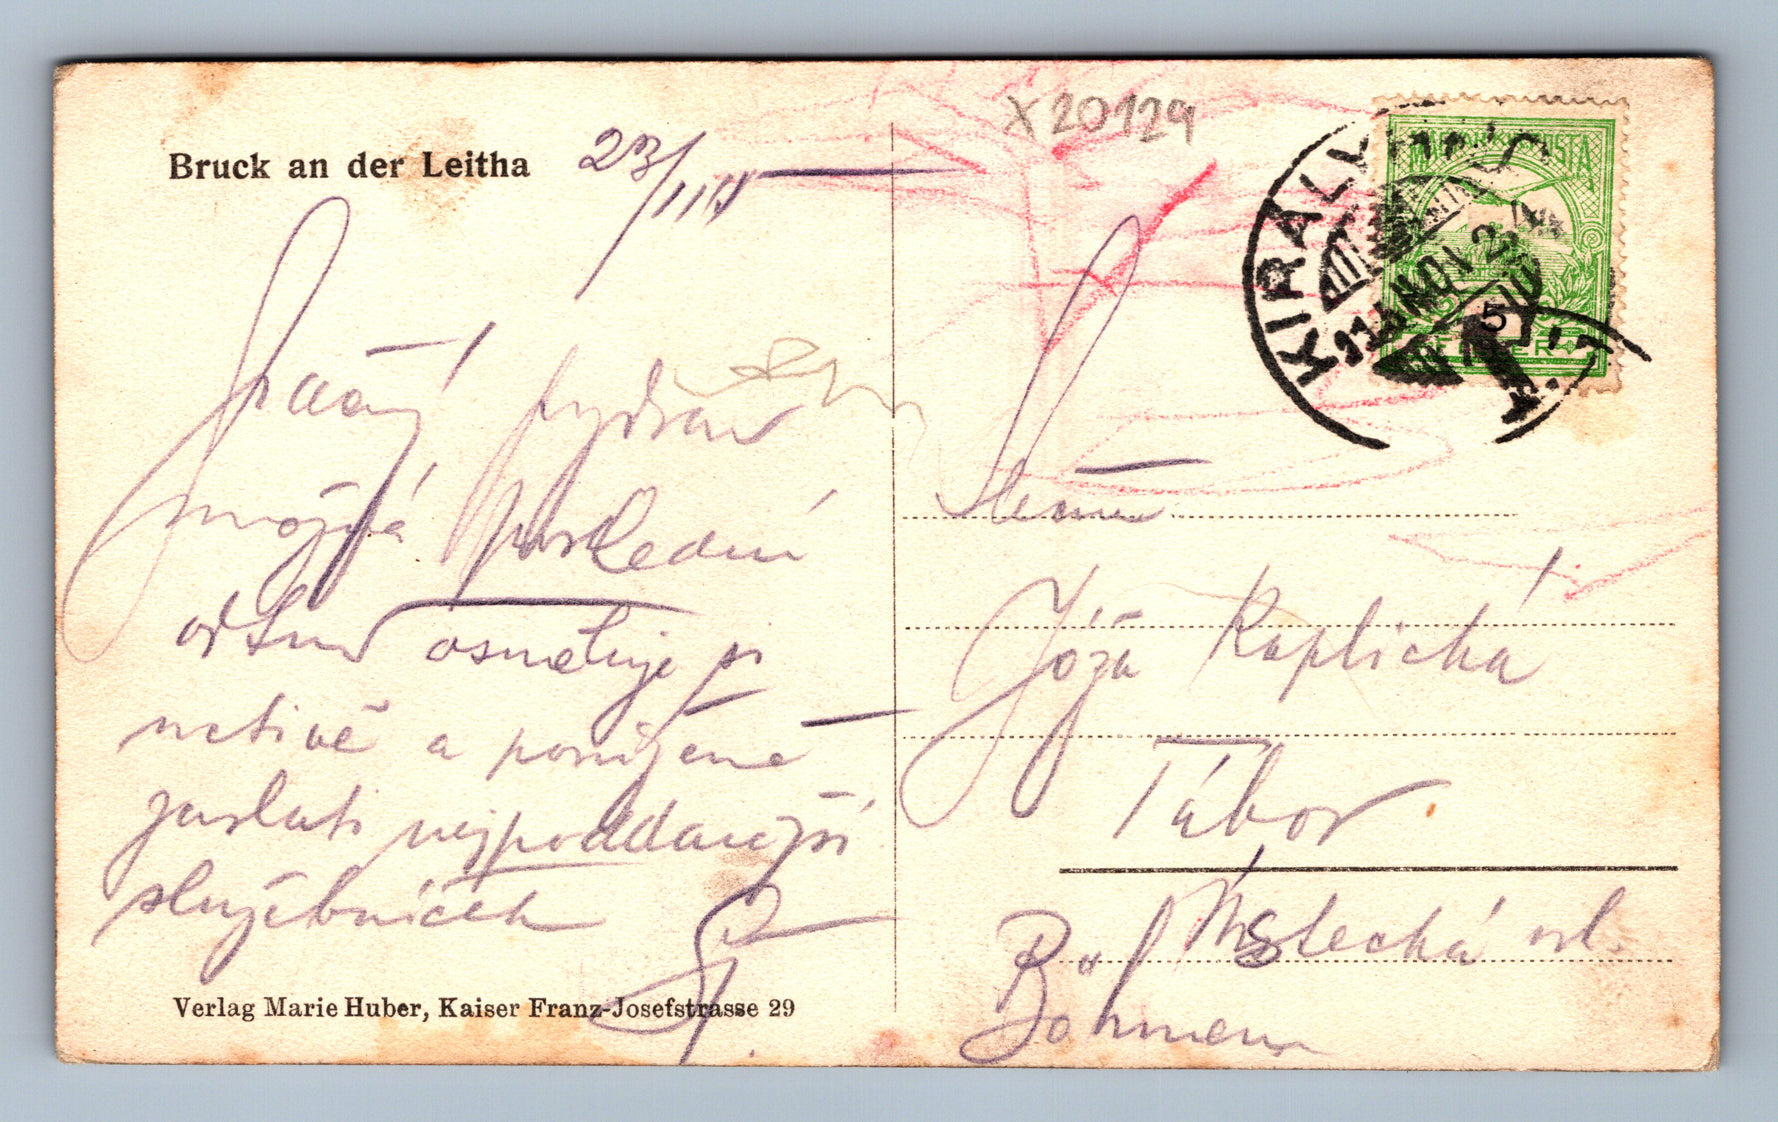 Bruck an der Leitha
23/11
X 20129
KIRÁLY
MAGYAR POSTA
5
Srdečný pozdrav
možná poslední
odtud osměluje si
uctivě a poníženě
zaslati nejpoddanější
služebníček
Slečna
Jóža Kaplická
Tábor
Městecká ul.
Böhmen
Verlag Marie Huber, Kaiser Franz-Josefstrasse 29